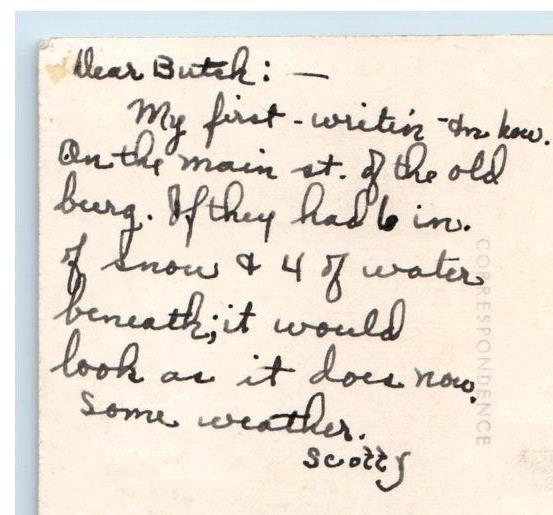 Dear Butch: —
My first - writin -
On the main st. of the old
burg. If they had 6 in.
of snow & 4 of water
beneath; it would
look as it does now.
Some weather.
Scotty
CORRESPONDENCE